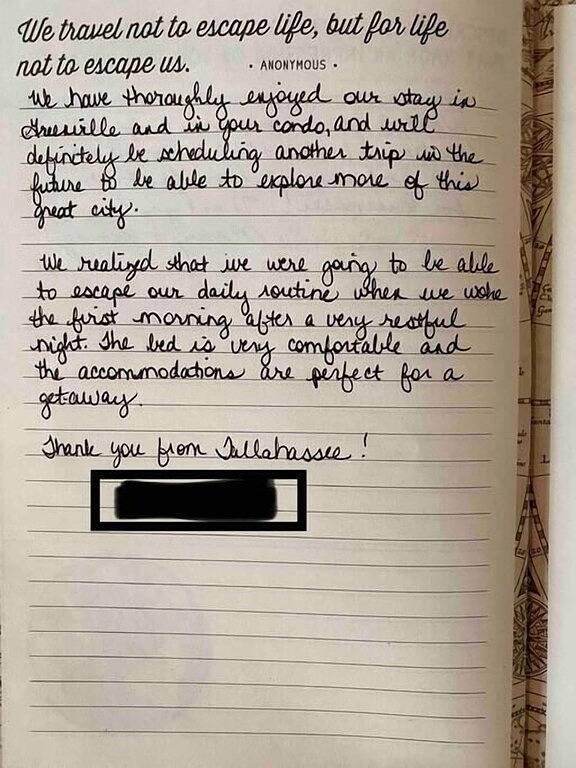 We travel not to escape life, but for life
not to escape us. • ANONYMOUS •
We have thoroughly enjoyed our stay in
Greenville and in your condo, and will
definitely be scheduling another trip in the
future to be able to explore more of this
great city.
We realized that we were going to be able
to escape our daily routine when we woke
the first morning after a very restful
night. The bed is very comfortable and
the accommodations are perfect for a
getaway.
Thank you from Tallahassee!